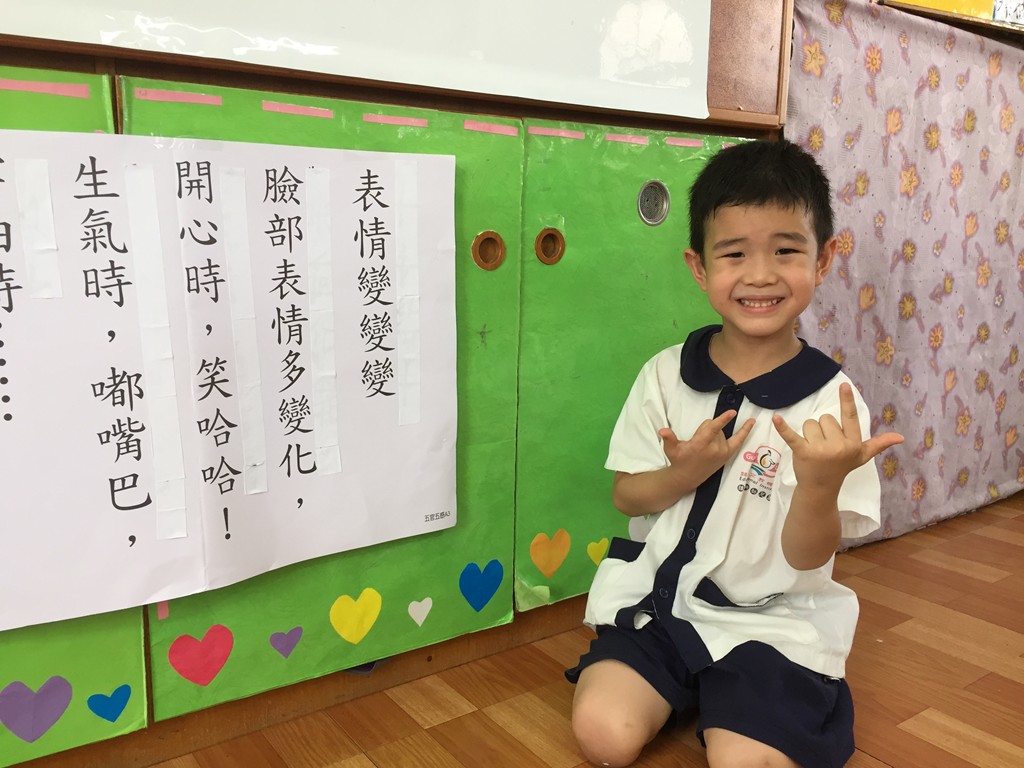 表情變變變
臉部表情多變化，
開心時，笑哈哈！
生氣時，嘟嘴巴，
五官五感A3